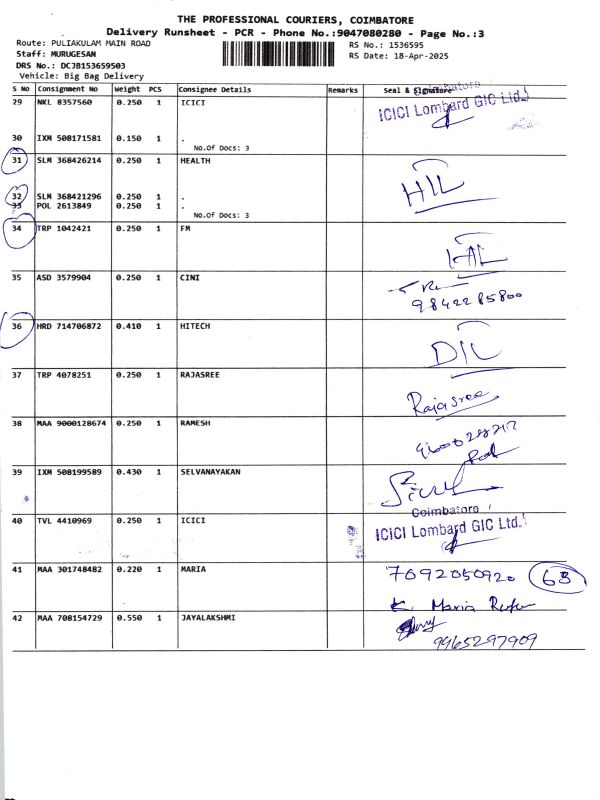 THE PROFESSIONAL COURIERS, COIMBATORE
Delivery Runsheet - PCR - Phone No.:9047080280 - Page No.:3
Route: PULIAKULAM MAIN ROAD
Staff: MURUGESAN
DRS No.: DCJB153659503
Vehicle: Big Bag Delivery
RS No.: 1536595
RS Date: 18-Apr-2025
S No Consignment No Weight PCS Consignee Details Remarks Seal & Signature
Coimbatore
29 NKL 8357560 0.250 1 ICICI ICICI Lombard GIC Ltd.
30 IXM 508171581 0.150 1 .
No.Of Docs: 3
31 SLM 368426214 0.250 1 HEALTH
HIL
32 SLM 368421296 0.250 1 .
33 POL 2613849 0.250 1 .
No.Of Docs: 3
34 TRP 1042421 0.250 1 FM
35 ASD 3579904 0.250 1 CINI
9842285800
36 HRD 714706872 0.410 1 HITECH
DIL
37 TRP 4078251 0.250 1 RAJASREE
Rajasree
38 MAA 9000128674 0.250 1 RAMESH
39 IXM 508199589 0.430 1 SELVANAYAKAN
Coimbatore
40 TVL 4410969 0.250 1 ICICI ICICI Lombard GIC Ltd.
41 MAA 301748482 0.220 1 MARIA 7092050920 63
K. Maria
42 MAA 708154729 0.550 1 JAYALAKSHMI
9965297909